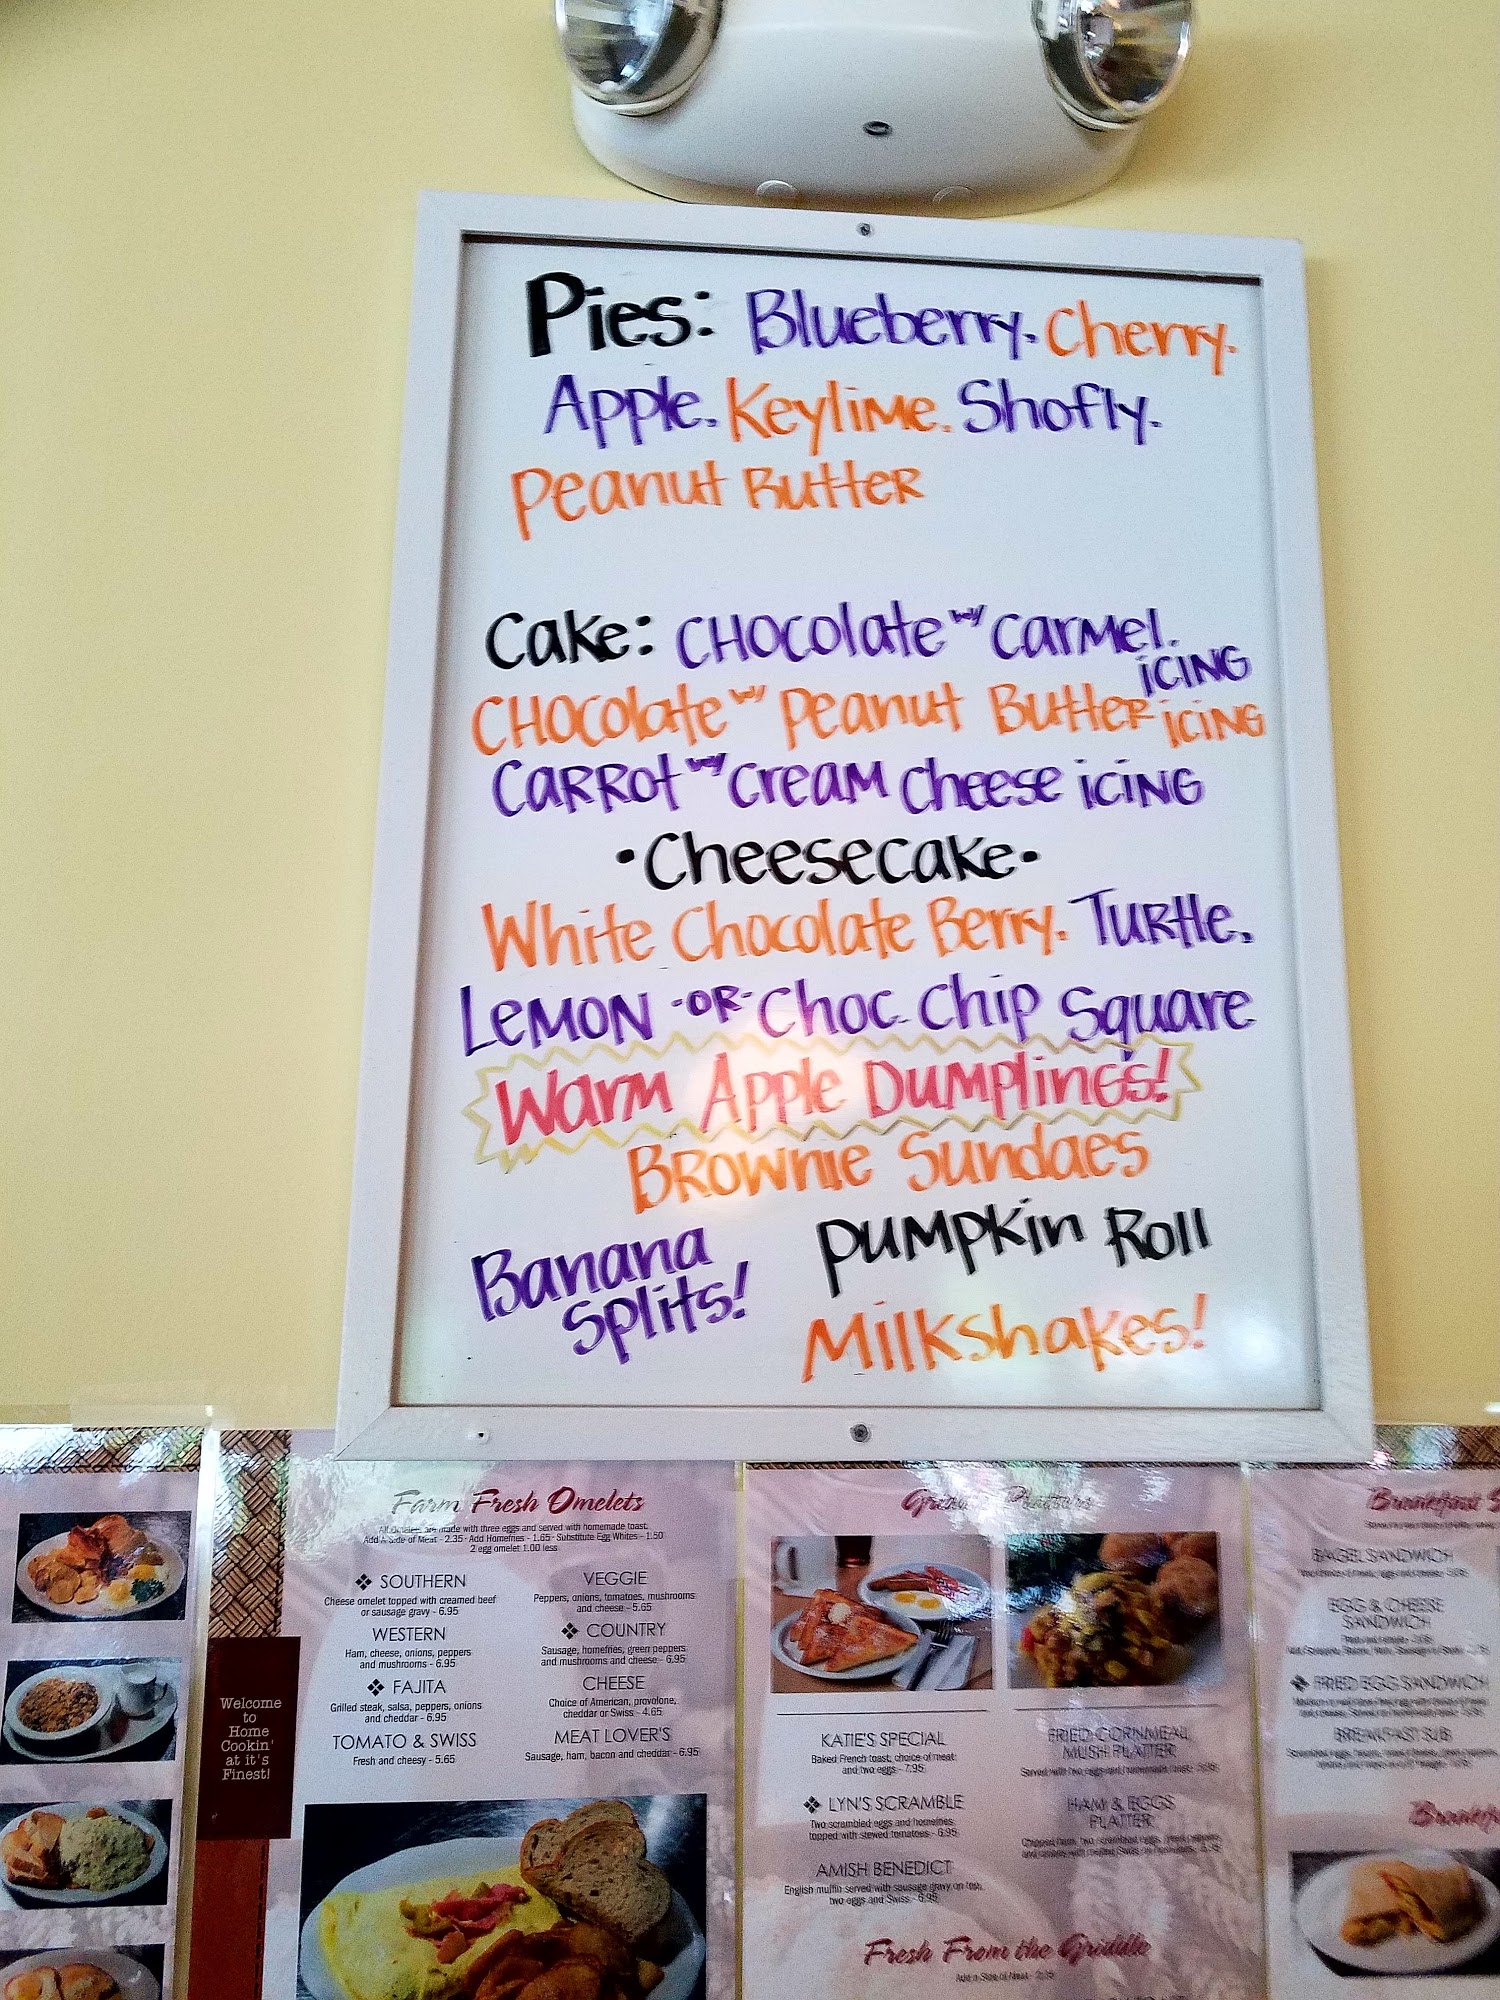 Pies: Blueberry. Cherry.
Apple. Keylime. Shofly.
Peanut Butter
Cake: Chocolate w/ Carmel.
icing
Chocolate w/ Peanut Butter icing
Carrot w/ Cream Cheese icing
•Cheesecake•
White Chocolate Berry. Turtle.
Lemon -or- Choc Chip Square
Warm Apple Dumplings!
Brownie Sundaes
Banana
Splits!
Pumpkin Roll
Milkshakes!
Welcome
to
Home
Cookin'
at it's
Finest!
Farm Fresh Omelets
All Omelets are made with three eggs and served with homemade toast.
Add A Side of Meat - 2.35 · Add Homefries - 1.65 · Substitute Egg Whites - 1.50
2 egg omelet 1.00 less
❖ SOUTHERN
Cheese omelet topped with creamed beef
or sausage gravy - 6.95
WESTERN
Ham, cheese, onions, peppers
and mushrooms - 6.95
❖ FAJITA
Grilled steak, salsa, peppers, onions
and cheddar - 6.95
TOMATO & SWISS
Fresh and cheesy - 5.65
VEGGIE
Peppers, onions, tomatoes, mushrooms
and cheese - 5.65
❖ COUNTRY
Sausage, homefries, green peppers
and mushrooms and cheese - 6.95
CHEESE
Choice of American, provolone,
cheddar or Swiss - 4.65
MEAT LOVER'S
Sausage, ham, bacon and cheddar - 6.95
Platters
KATIE'S SPECIAL
Baked French toast, choice of meat
and two eggs - 7.95
❖ LYN'S SCRAMBLE
Two scrambled eggs and homefries
topped with stewed tomatoes - 6.95
AMISH BENEDICT
English muffin served with sausage gravy on top,
two eggs and Swiss - 6.95
FRIED CORNMEAL
MUSH PLATTER
Served with two eggs and homemade toast
HAM & EGGS
PLATTER
Fresh From the Griddle
Add a Side of Meat - 2.35
Breakfast
BAGEL SANDWICH
EGG & CHEESE
SANDWICH
❖ FRIED EGG SANDWICH
BREAKFAST SUB